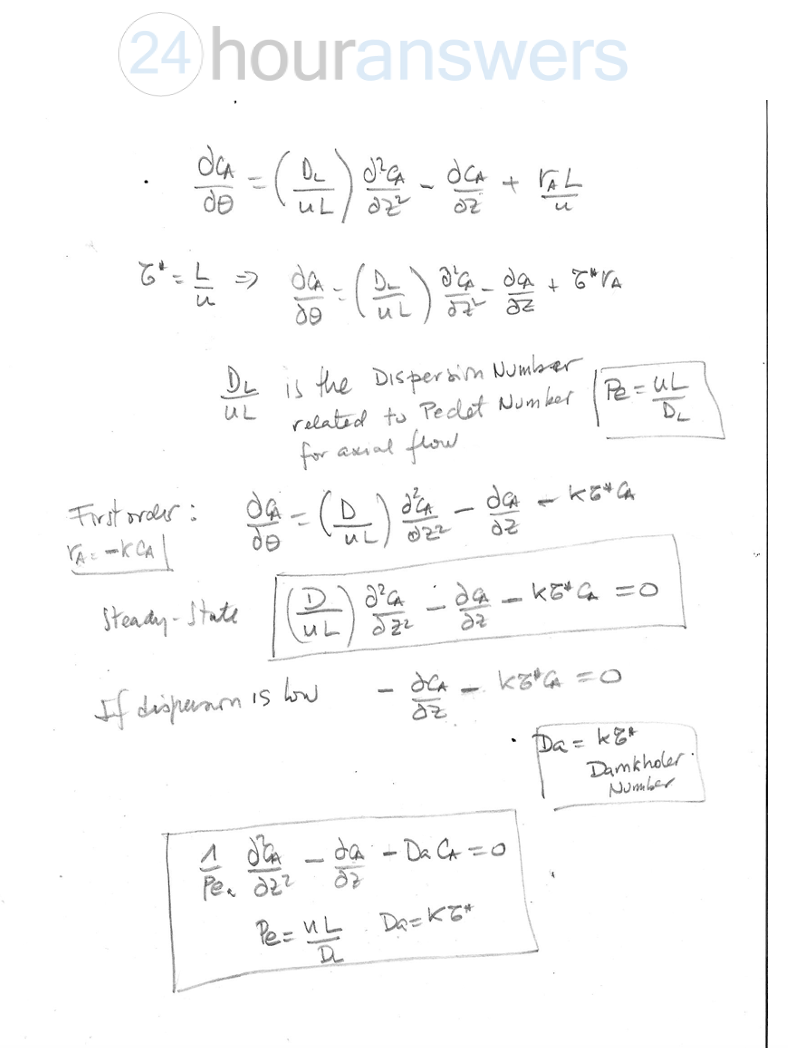 24 houranswers
∂C_A/∂θ = (D_L/uL) ∂²C_A/∂z² - ∂C_A/∂z + r_A L/u
τ* = L/u ⇒ ∂C_A/∂θ = (D_L/uL) ∂²C_A/∂z² - ∂C_A/∂z + τ* r_A
D_L/uL is the Dispersion Number
related to Peclet Number
for axial flow
Pe = uL/D_L
First order: ∂C_A/∂θ = (D/uL) ∂²C_A/∂z² - ∂C_A/∂z - kτ* C_A
r_A = -k C_A
Steady-State (D/uL) ∂²C_A/∂z² - ∂C_A/∂z - kτ* C_A = 0
If dispersion is low - ∂C_A/∂z - kτ* C_A = 0
Da = kτ*
Damkholer
Number
1/Pe ∂²C_A/∂z² - ∂C_A/∂z - Da C_A = 0
Pe = uL/D_L Da = kτ*